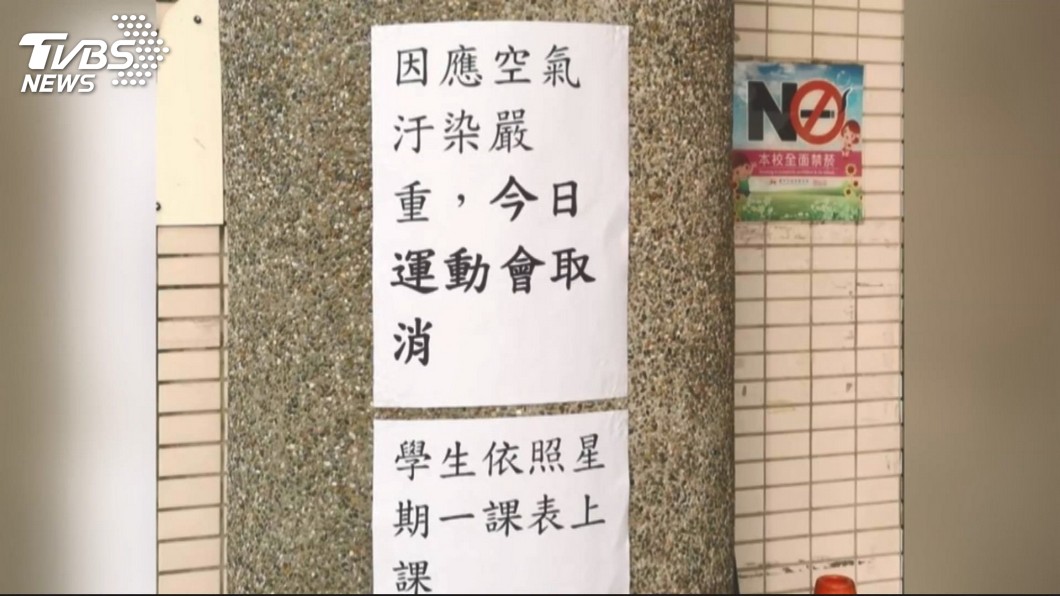 TVBS
NEWS
因應空氣
汙染嚴
重，今日
運動會取
消
學生依照星
期一課表上
課
NO
本校全面禁菸